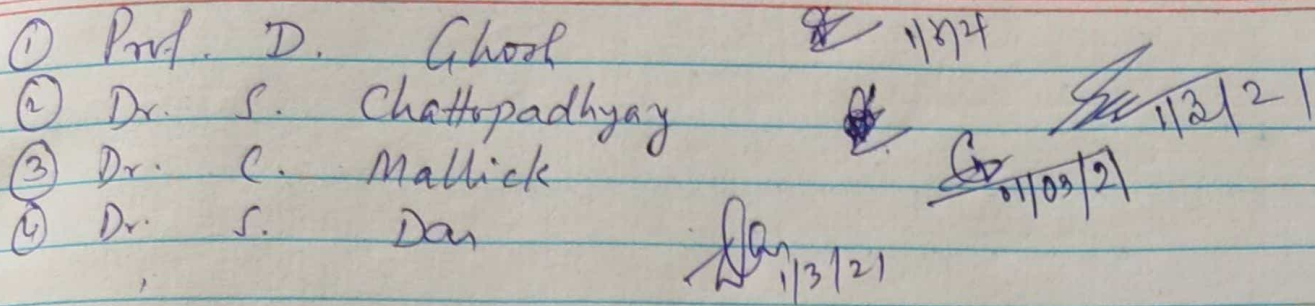 ① Prof. D. Ghosh 1/3/21
② Dr. S. Chattopadhyay 1/3/21
③ Dr. C. Mallick 01/03/21
④ Dr. S. Das 1/3/21